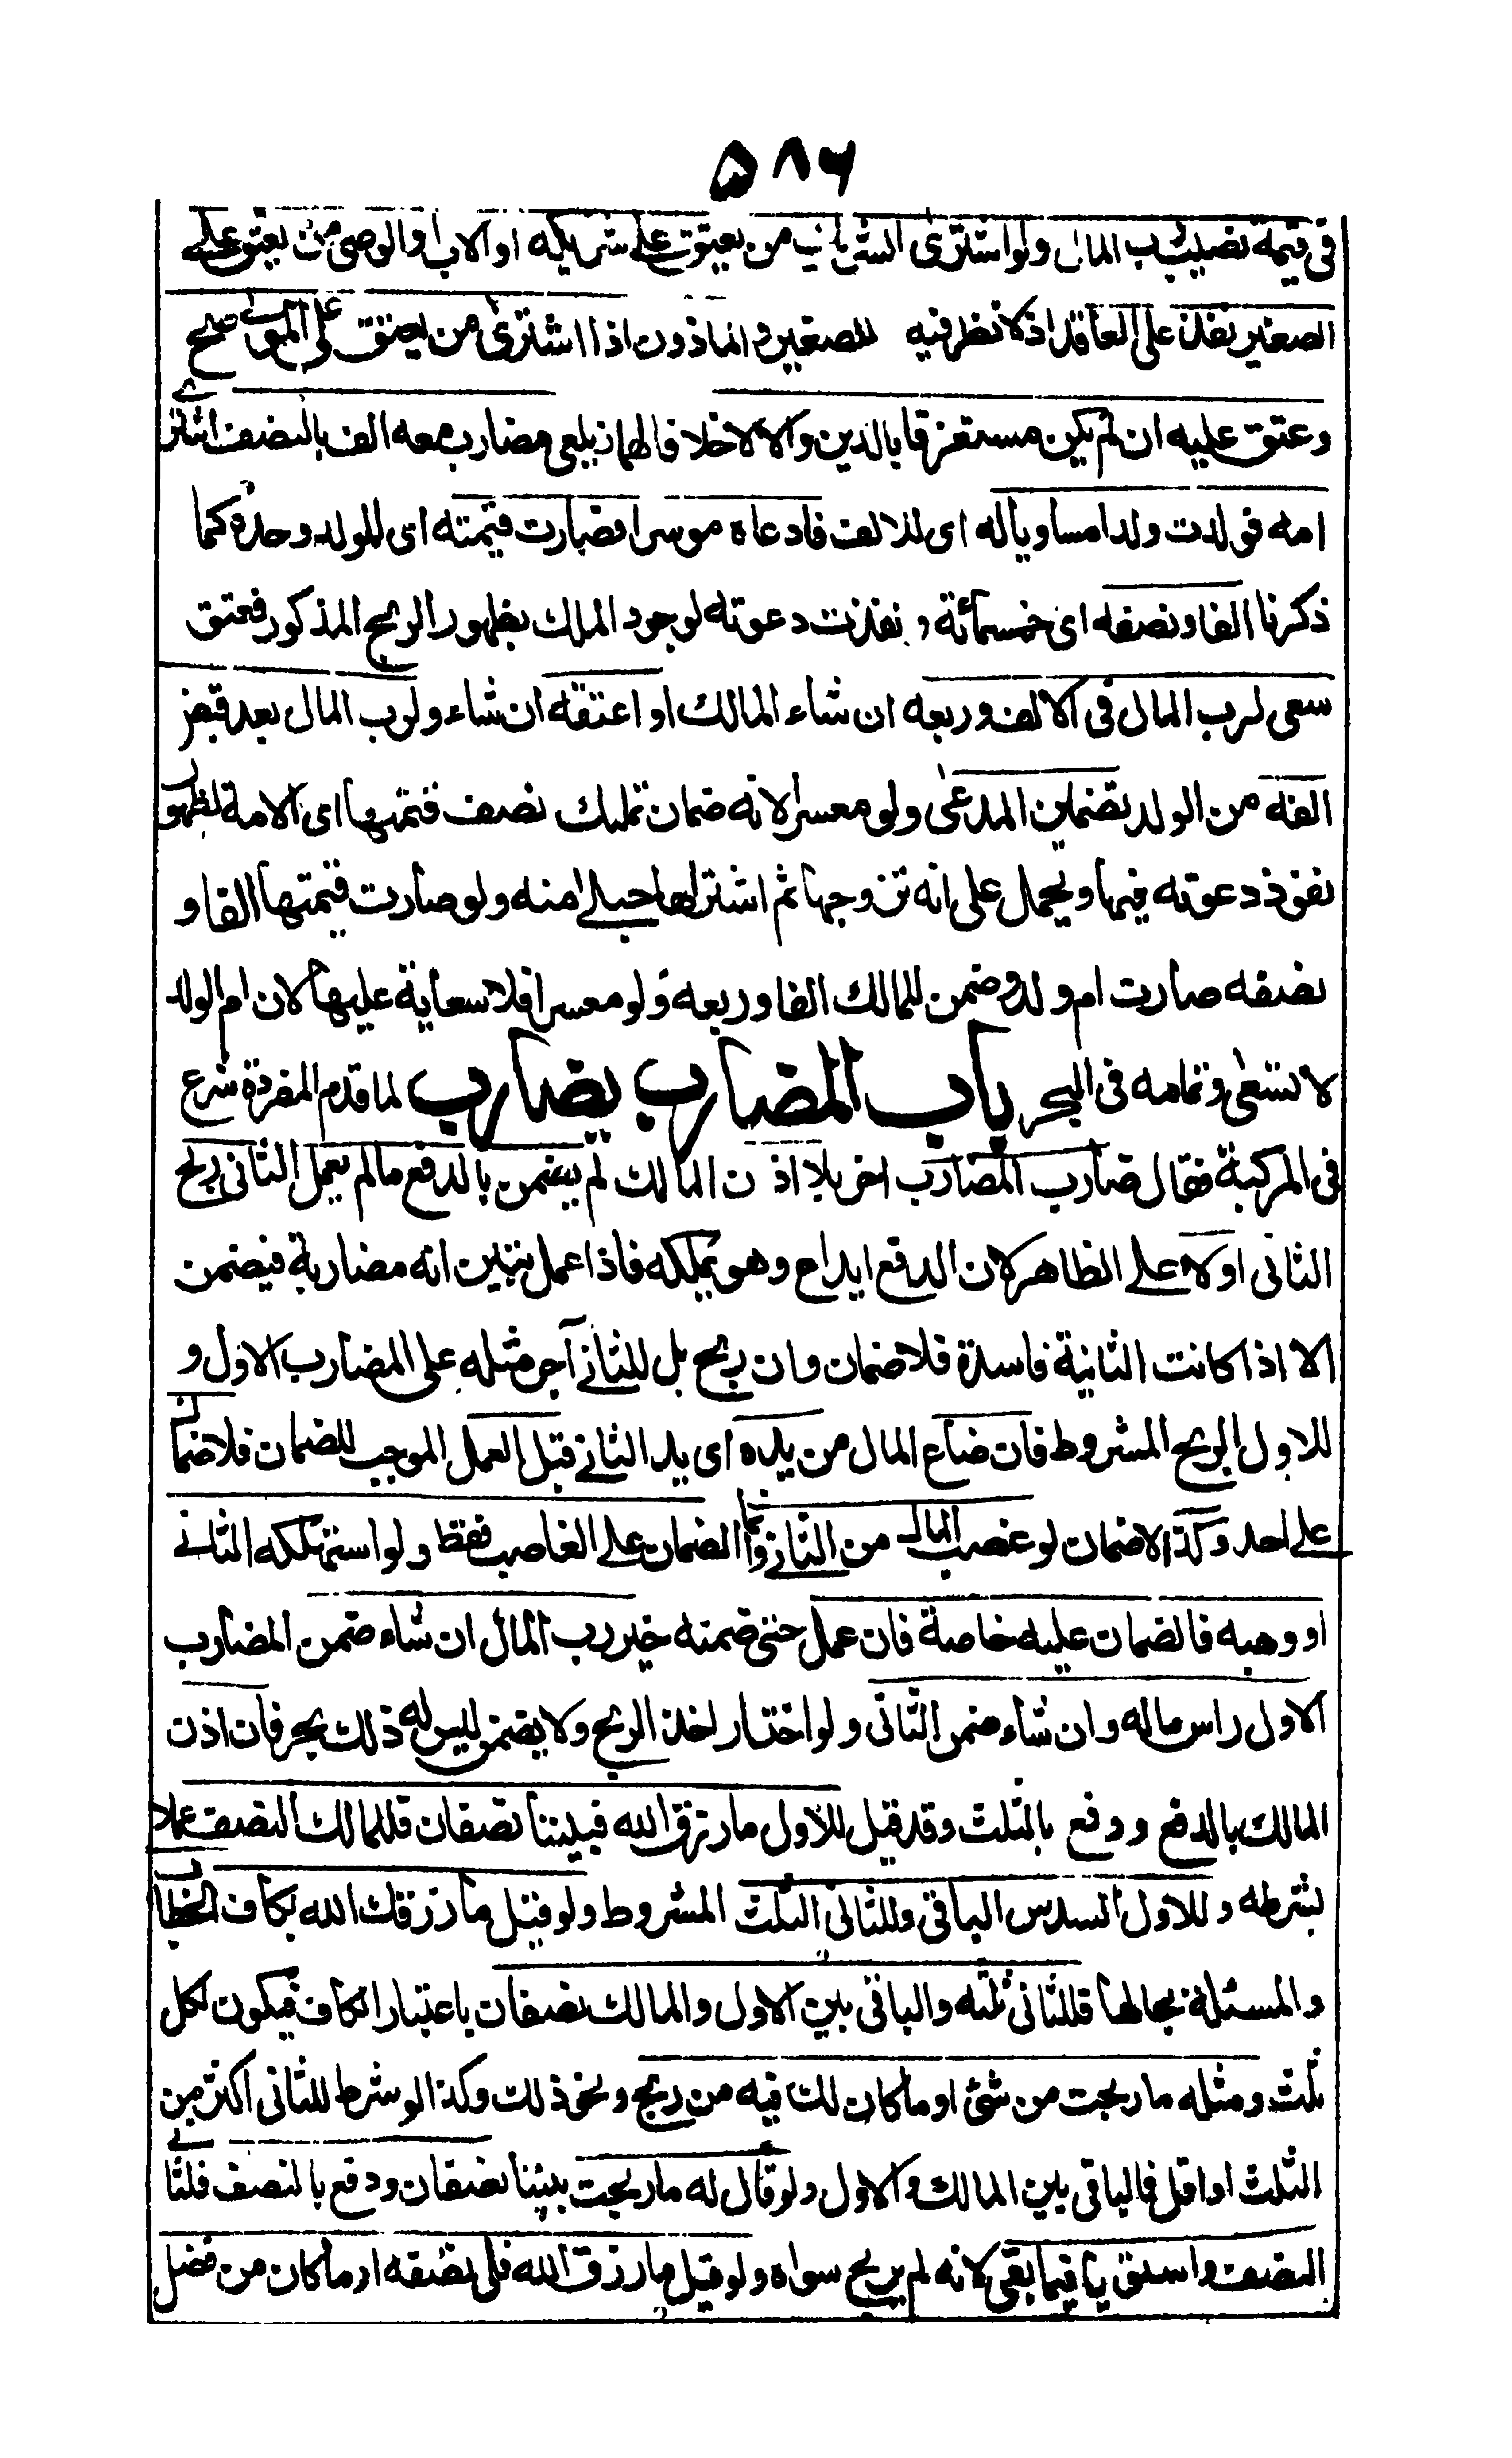 ۵۸۶
فى قيمة نصيب رب المال ولو اشترى الشريك من يعتق على شريكه او الاب او الوصى من يعتق على
الصغير نفذ على العاقد اذ لا نظر فيه للصغير والماذون اذا اشترى من يعتق على المولى صح
وعتق عليه ان لم يكن مستغرقا بالدين والا لا خلافا لهما زيلعى مضارب معه الف بالنصف اشترى
امه فولدت ولدا مساويا له اى للالف فادعاه موسرا فصارت قيمته اى للولد وحده كما
ذكرنا الفا ونصفه اى خمسمائة ونفذت دعوته لوجود الملك بظهور الربح المذكور فعتق
سعى لرب المال فى الالف وربعه ان شاء المالك او اعتقه ان شاء ولرب المال بعد قبض
الفه من الولد تضمين المدعى ولو معسرا لانه ضمان تملك نصف قيمتها اى الامة لظهور
نفوذ دعوته فيها ويحمل على انه تزوجها ثم اشتراها حبلى منه ولو صارت قيمتها الفا و
نصفه صارت ام ولد وضمن للمالك الفا وربعه ولو معسرا فلا سعاية عليها لان ام الولد
لا تسعى وتمامه فى البحر باب المضارب يضارب لما قدم المفردة شرع
فى المركبة فقال ضارب المضارب اخر بلا اذن المالك لم يضمن بالدفع مالم يعمل الثانى ربح
الثانى اولا على الظاهر لان الدفع ايداع وهو يملكه فاذا عمل تبين انه مضاربة فيضمن
الا اذا كانت الثانية فاسدة فلا ضمان وان ربح بل للثانى اجر مثله على المضارب الاول و
للاول الربح المشروط فان ضاع المال من يده اى يد الثانى قبل العمل الموجب للضمان فلا ضمان
على احد وكذا لا ضمان لو غصب المال من الثانى وانما الضمان على الغاصب فقط ولو استهلكه الثانى
او وهبه فالضمان عليه خاصة فان عمل حتى ضمنه خير رب المال ان شاء ضمن المضارب
الاول راس ماله وان شاء ضمن الثانى ولو اختار اخذ الربح ولا يضمن ليس له ذلك بحر فان اذن
المالك بالدفع ودفع بالثلث وقد قيل للاول مارزق الله فبيننا نصفان فللمالك النصف عملا
بشرطه وللاول السدس الباقى وللثانى الثلث المشروط ولو قيل مارزقك الله بكاف الخطاب
والمسئلة بحالها فللثانى ثلثه والباقى بين الاول والمالك نصفان باعتبار الكاف فيكون لكل
ثلث ومثله ماربحت من شئ او ماكان لك فيه من ربح ونحو ذلك وكذا لو شرط للثانى اكثر من
الثلث او اقل فالباقى بين المالك والاول ولو قال له ماربحت بيننا نصفان ودفع بالنصف فللثانى
النصف واستويا فيما بقى لانه لم يربح سواه ولو قيل مارزق الله فلى نصفه او ماكان من فضل